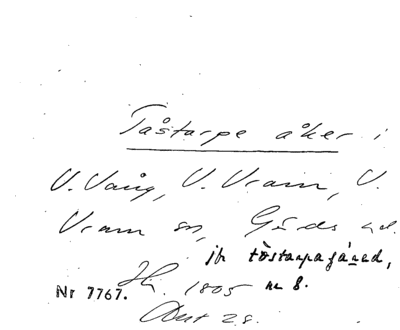 Tåstarpe åker i
V. Vång, V. Vram, V.
Vram sn, Gärds hd.
jfr tåstarpagäred,
Hs. 1805 nr 8.
Nr 7767.
Akt 28.